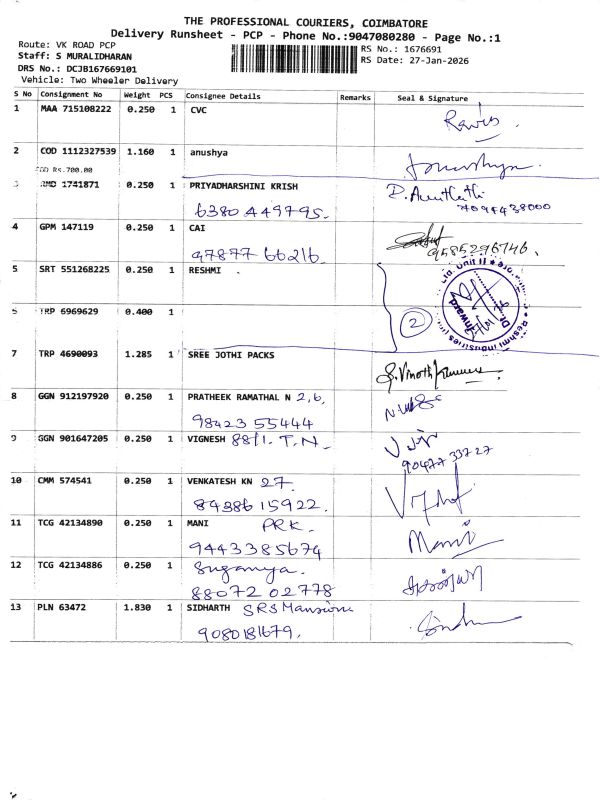 THE PROFESSIONAL COURIERS, COIMBATORE
Delivery Runsheet - PCP - Phone No.:9047080280 - Page No.:1
Route: VK ROAD PCP
Staff: S MURALIDHARAN
DRS No.: DCJB167669101
Vehicle: Two Wheeler Delivery
RS No.: 1676691
RS Date: 27-Jan-2026
S No Consignment No Weight PCS Consignee Details Remarks Seal & Signature
1 MAA 715108222 0.250 1 CVC
2 COD 1112327539 1.160 1 anushya
COD Rs.700.00
3 AMD 1741871 0.250 1 PRIYADHARSHINI KRISH
6380449795.
7094438000
4 GPM 147119 0.250 1 CAI
97877 66216.
9585296746.
5 SRT 551268225 0.250 1 RESHMI .
6 TRP 6969629 0.400 1
2
7 TRP 4690093 1.285 1 SREE JOTHI PACKS
S. Vinoth
8 GGN 912197920 0.250 1 PRATHEEK RAMATHAL N 2,6,
98423 55444
9 GGN 901647205 0.250 1 VIGNESH 88/1. T.N.
90477 33727
10 CMM 574541 0.250 1 VENKATESH KN 27.
84386 15922.
11 TCG 42134890 0.250 1 MANI PRK.
9443385674
Mani
12 TCG 42134886 0.250 1 Suganya.
88072 02778
13 PLN 63472 1.830 1 SIDHARTH SRS Mansion
9080181679.